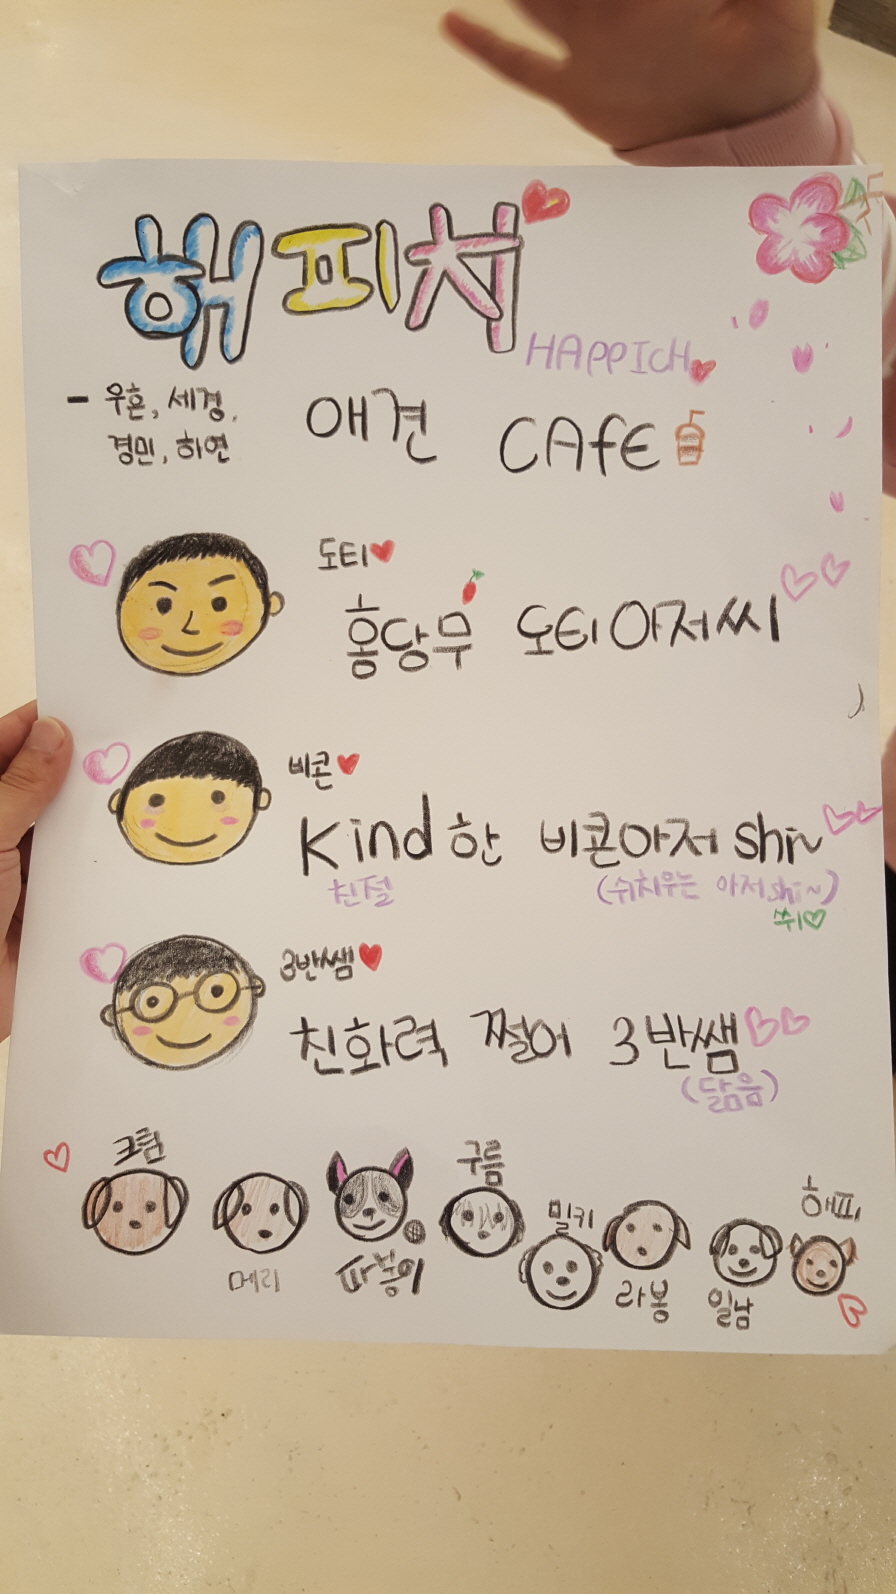 해피치
HAPPICH
- 우흔, 세경,
경민, 하연
애견 CAFE
도티
홍당무 도티아저씨
비콘
Kind한 비콘아저shi~
친절 (쉬치우는 아저shi~)
쒸
3반쌤
친화력 쩔어 3반쌤
(닮음)
크림
메리
파봉이
구름
밀키
라봉
일남
해피